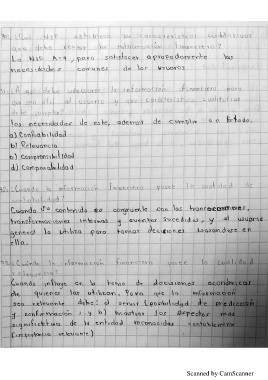 30. ¿Qué NIF establece las características cualitativas
que debe reunir la información financiera?
La NIF A-4, para satisfacer apropiadamente las
necesidades comunes de los usuarios
31. A qué debe adecuarse la información financiera para
que sea útil al usuario y que característica cualitativa
debe cumplir?
las necesidades de este, además de cumplir en todo
a) Confiabilidad
b) Relevancia
c) Comprensibilidad
d) Comparabilidad
32. Cuando la información financiera posee la cualidad de
confiabilidad?
Cuando su contenido es congruente con las transacciones,
transformaciones internas y eventos sucedidos, y el usuario
general la utiliza para tomar decisiones basandose en
ella.
33. ¿Cuándo la información financiera posee la cualidad
relevancia?
Cuando influye en la toma de decisiones económicas
de quienes las utilizan. Para que la información
sea relevante debe: a) servir (posibilidad de predicción
y confirmación), y b) mostrar los aspectos mas
significativos de la entidad reconocidos contablemente
(importancia relativa)
Scanned by CamScanner